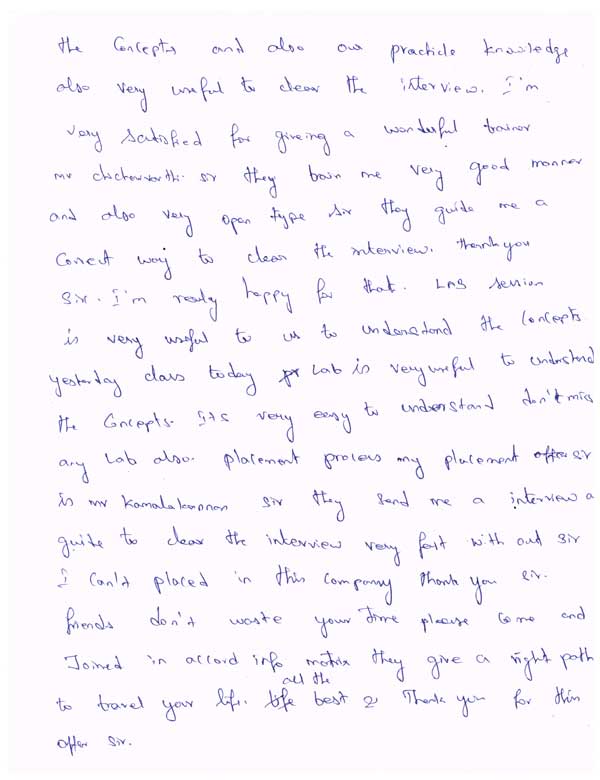 the Concepts and also our practicle knowledge
also very useful to clear the interview. I'm
very satisfied for giveing a wonderful trainer
mr sir they me very good manner
and also very open type sir they guide me a
Correct way to clear the interview. thank you
Sir. I'm really happy for that. LAB session
is very useful to us to understand the Concepts
yesterday class today Lab is very useful to understand
the Concepts. It's very easy to understand don't miss
any Lab also. placement process my placement sir
is mr Kamalakannan sir they send me a interview a
guide to clear the interview very fast with out sir
I Can't placed in this Company Thank you sir.
friends don't waste your time please Come and
Joined in accord info matrix they give a right path
all the
to travel your life. best Thank you for this
offer Sir.